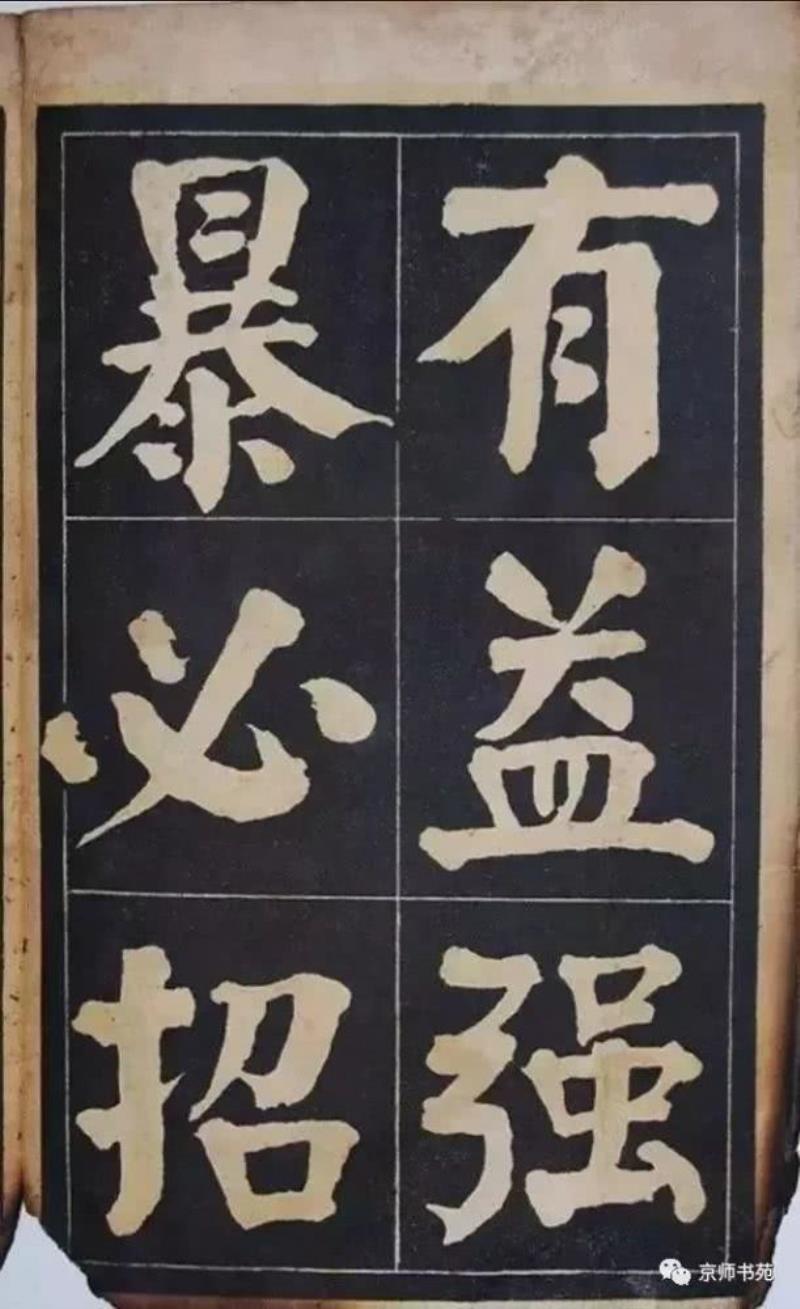 有益强
暴必招
京师书苑